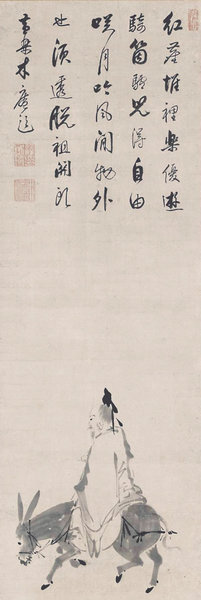 紅塵堆裡樂優遊
騎箇驢兒得自由
咲月吟風閒物外
也須透脫祖關頭
黃檗木庵題